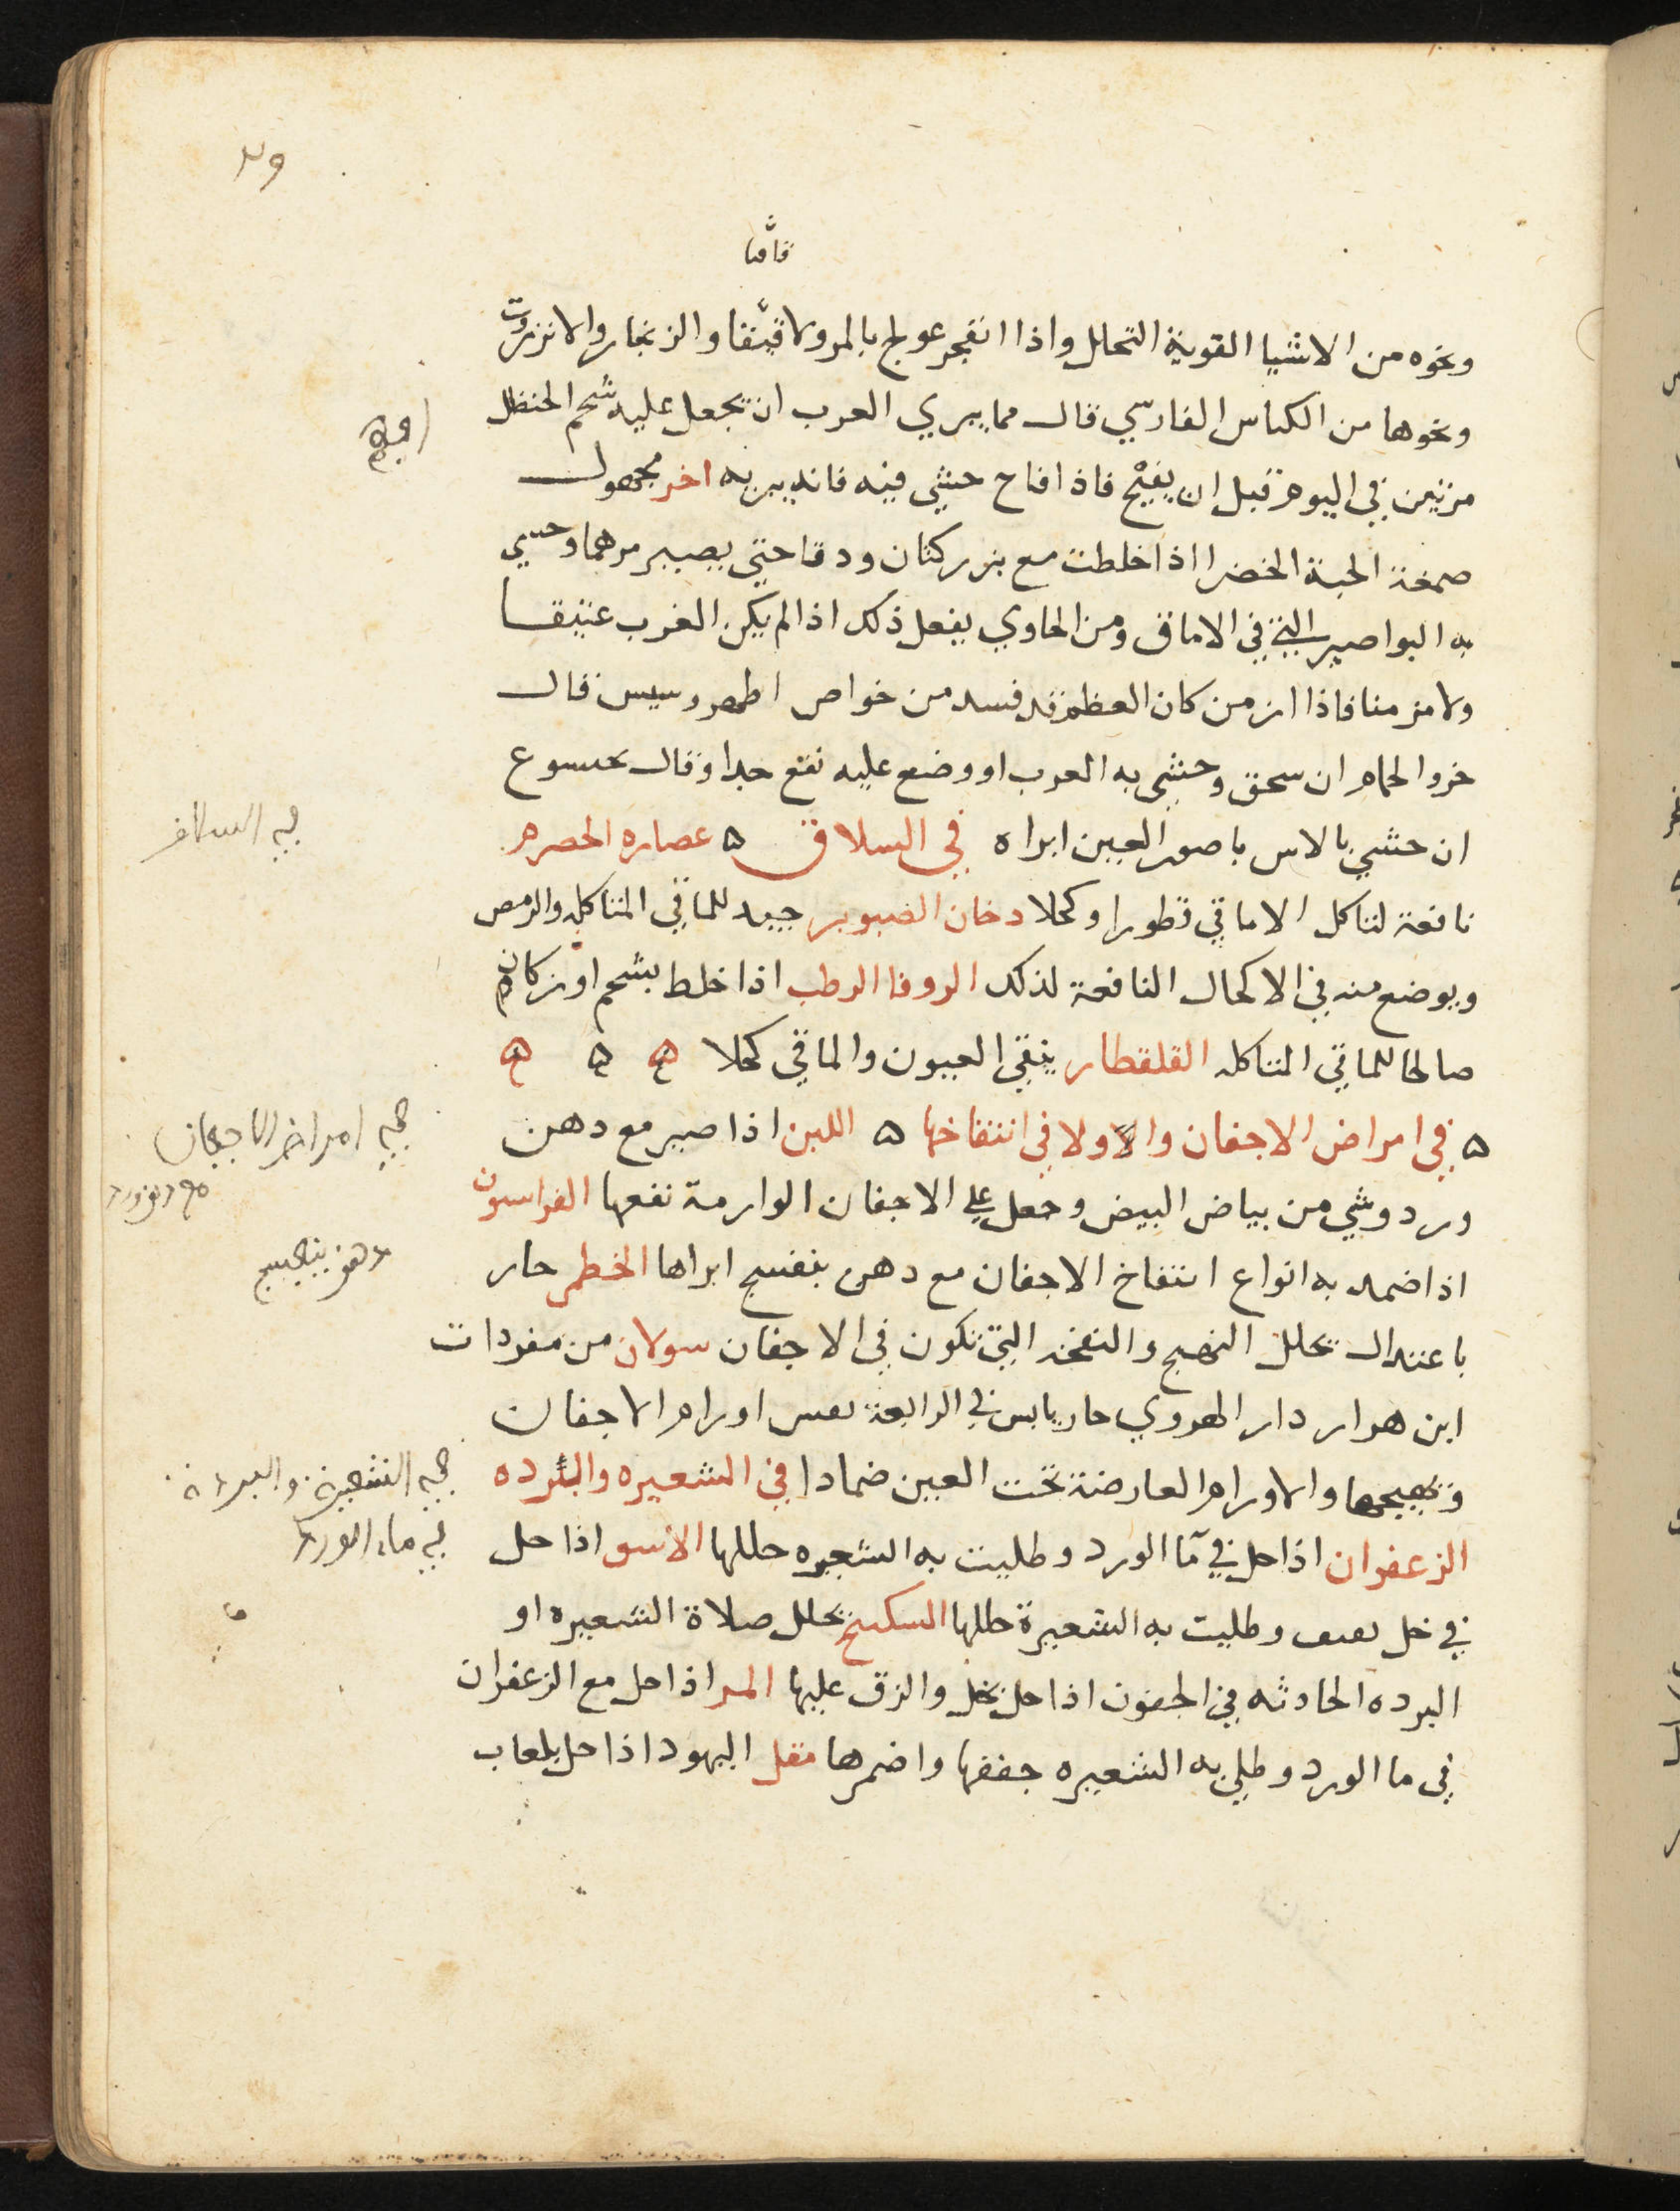 قاقيا
ونحوه من الاشيا القوية التحلل واذا انفجر عولج بالمر ولاقيّقا والزنجار والانزروت
ونحوها من الكناس الفارسي قال مما يبري العرب ان يجعل عليه شحم الحنظل
مرتين في اليوم قبل ان يفتح فاذا فاح حشي فيه فانه يبريه اخر مجهول
صمغة الحبة الخضرا اذا خلطت مع بزر كتان ودقا حتي يصير مرهما وحشي
به البواصير التي في الاماق ومن الحاوي يفعل ذلك اذا لم يكن الغرب عتيقا
ولا مزمنا فاذا ازمن كان العظم قد فسد من خواص اطهوروسيس قال
خرو الحمام ان سحق وحشي به العرب او وضع عليه نفع جدا وقال
ان حشي بالاس باصور العين ابراه في السلاق ه عصاره الحصرم
نافعة لتاكل الاماقي قطورا وكحلا دخان الصنوبر جيد للماقي المتاكله والرمص
ويوضع منه في الاكحال النافعة لذلك الروفا الرطب اذا خلط بشحم اوز كان
صالحا للماقي المتاكله القلقطار ينقي العيون والماقي كحلا ه ه ه
ه في امراض الاجفان والاولا في انتفاخها ه اللبن اذا صير مع دهن
ورد وشي من بياض البيض وجعل علي الاجفان الوارمة نفعها الفراسيون
اذا ضمد به انواع انتفاخ الاجفان مع دهن بنفسج ابراها الخطمي حار
باعتدال يحلل التهيج والنفخه التي تكون في الاجفان سولان من مفردات
ابن هوار دار الهروي حار يابس في الرابعة اورام الاجفان
وتهيجها والاورام العارضة تحت العين ضمادا في الشعيره والبرده
الزعفران اذا حل في ما الورد وطليت به الشعيره حللها الاشق اذا حل
في خل وطليت به الشعيرة حللها السكبنج يحلل صلاة الشعيره او
البرده الحادثه في الجفون اذا حل بخل والزق عليها المر اذا حل مع الزعفران
في ما الورد وطلي به الشعيره جففها واضمرها مقل اليهود اذا حل بلعاب
في امراض الاجفان
دهن بنفسج
في الشعيرة والبردة
في ماء الورد